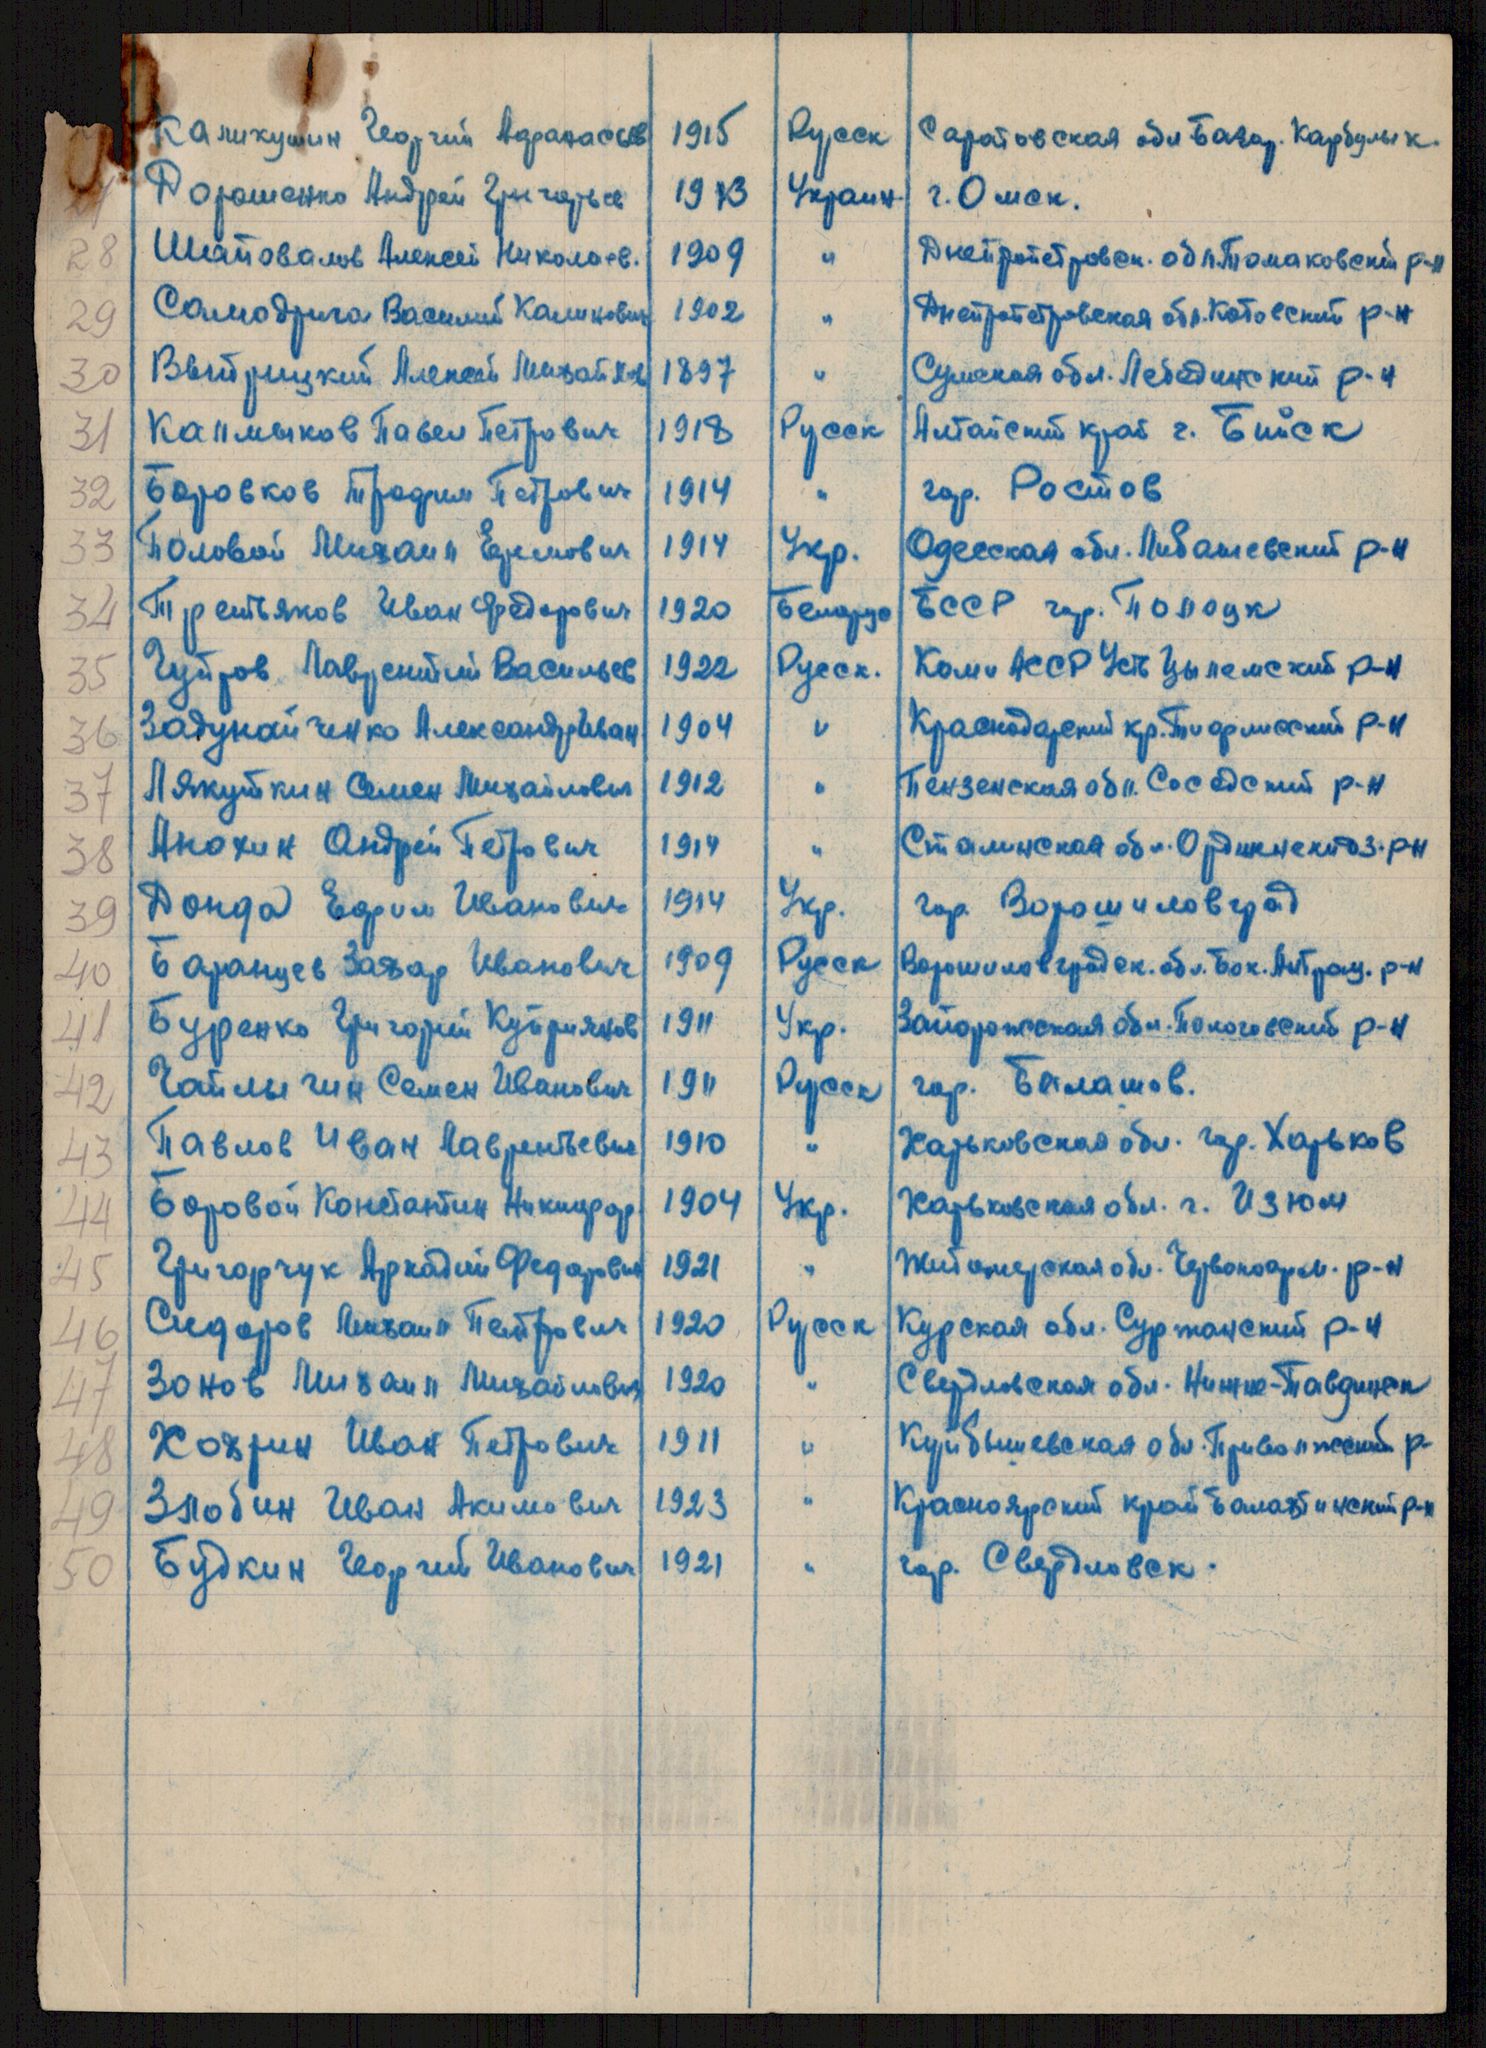 Каликушин Георгий Афанасьев 1915 Русск Саратовская обл Базар. Карбулык.
Дорошенко Андрей Григорьев 1913 Украин. г. Омск.
28 Шаповалов Алексей Николаев. 1909 " Днепропетровск. обл. Томаковский р-н
29 Самодрига Василий Калинович 1902 " Днепропетровская обл. Котовский р-н
30 Выприцкий Алексей Михайлов 1897 " Сумская обл. Лебединский р-н
31 Калмыков Павел Петрович 1918 Русск Алтайский край г. Бийск
32 Боровков Трофим Петрович 1914 " гор. Ростов
33 Половой Михаил Ефимович 1914 Укр. Одесская обл. Любашевский р-н
34 Третьяков Иван Федорович 1920 Белорус БССР гор. Полоцк
35 Чупров Лаврентий Васильев 1922 Русск. Коми АССР Усть Цылемский р-н
36 Задунайченко Александр Иван 1904 " Краснодарский кр. Тиормисский р-н
37 Лякуткин Семен Михайлович 1912 " Пензенская обл. Соседский р-н
38 Анохин Андрей Петрович 1914 " Сталинская обл. р-н
39 Донда Ефрим Иванович 1914 Укр. гор. Ворошиловград
40 Баранцев Захар Иванович 1909 Русск Ворошиловградск. обл. Бок. Антрац. р-н
41 Буренко Григорий Куприянов 1911 Укр. Запорожская обл. Пологовский р-н
42 Чаплыгин Семен Иванович 1911 Русск гор. Балашов.
43 Павлов Иван Лаврентьевич 1910 " Харьковская обл. гор. Харьков
44 Боровой Константин Никифор 1904 Укр. Харьковская обл. г. Изюм
45 Григорчук Аркадий Федорович 1921 " Житомерская обл. Червоноарм. р-н
46 Сидоров Михаил Петрович 1920 Русск Курская обл. Суржанский р-н
47 Зонов Михаил Михайлович 1920 " Свердловская обл. Нижне-Тавдинск
48 Хохрин Иван Петрович 1911 " Куйбышевская обл. Приволжский р-
49 Злобин Иван Акимович 1923 " Красноярский край Балахтинский р-н
50 Будкин Георгий Иванович 1921 " гор. Свердловск.